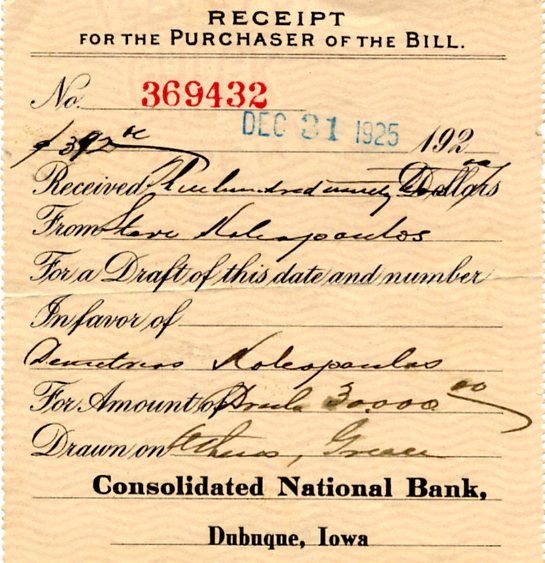 RECEIPT
FOR THE PURCHASER OF THE BILL.
No. 369432
$392.00 DEC 31 1925 192
Received Three hundred ninety Dollars
From Steve Koliopoulos
For a Draft of this date and number
In favor of
Demetrios Koliopoulos
For Amount of Drach 30.000 00
Drawn on Athens, Greece
Consolidated National Bank,
Dubuque, Iowa